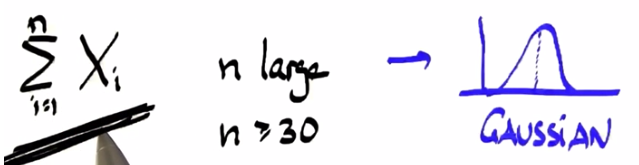 n
∑ Xᵢ n large →
i=1
n ≥ 30 GAUSSIAN